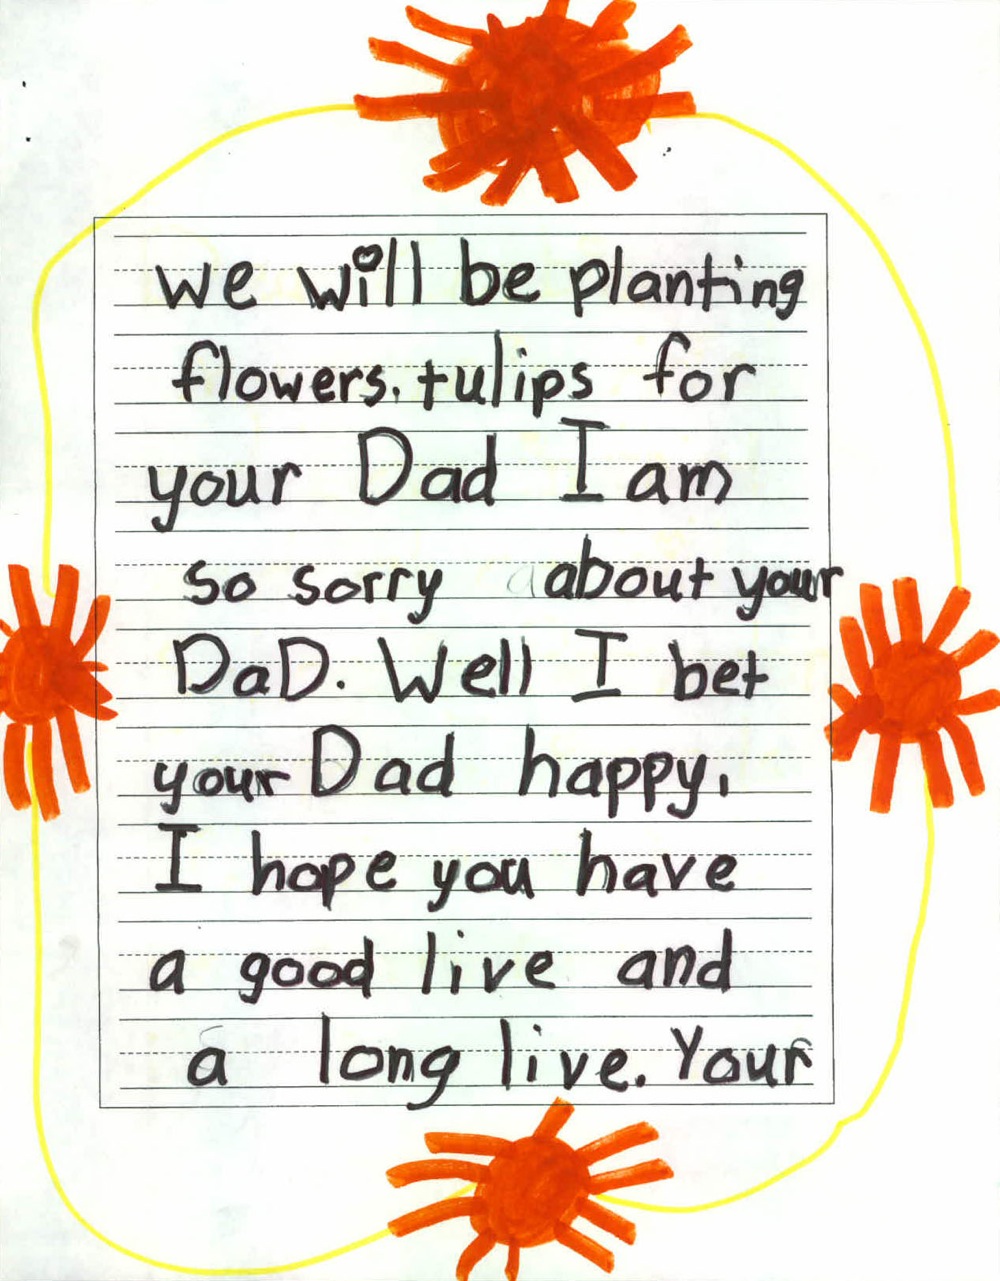 we will be planting
flowers. tulips for
your Dad I am
so sorry about your
DaD. Well I bet
your Dad happy.
I hope you have
a good live and
a long live. Your